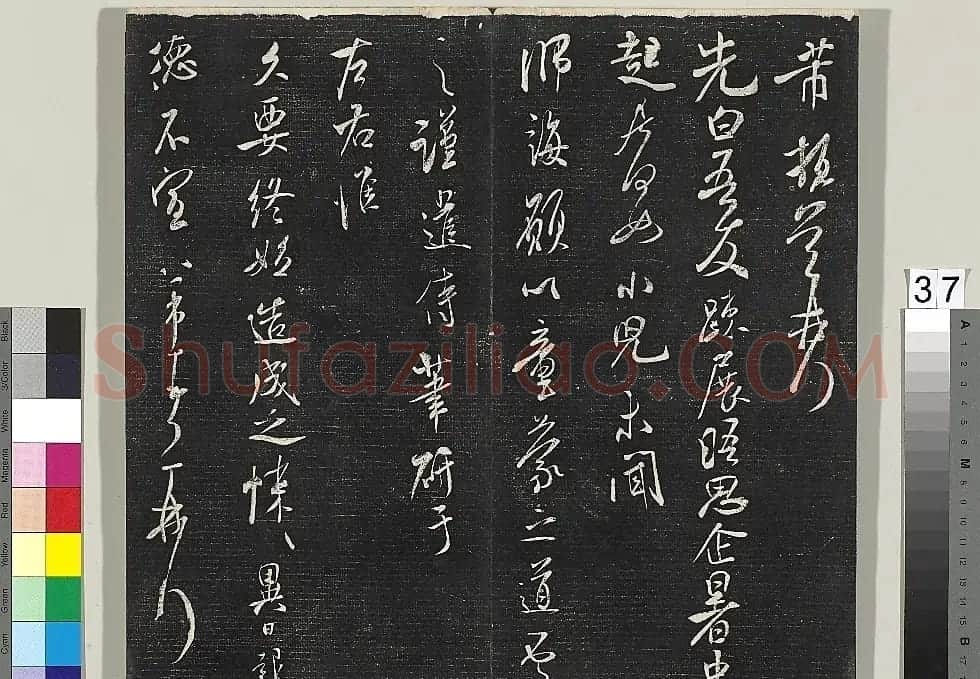 芾頓首再拜
先白吾友踈展晤思企暑中
起居何如小兒未聞
師誨願以童蒙之道也
之謹遣侍筆研于
左右惟
久要終始造成之悚悚異日報
德不宣芾頓首再拜
Shufaziliao.COM
37
Black
3/Color
White
Magenta
Red
Yellow
Green
Cyan
A 1 2 3 4 5 6 M 8 9 10 11 12 13 14 15 B 17